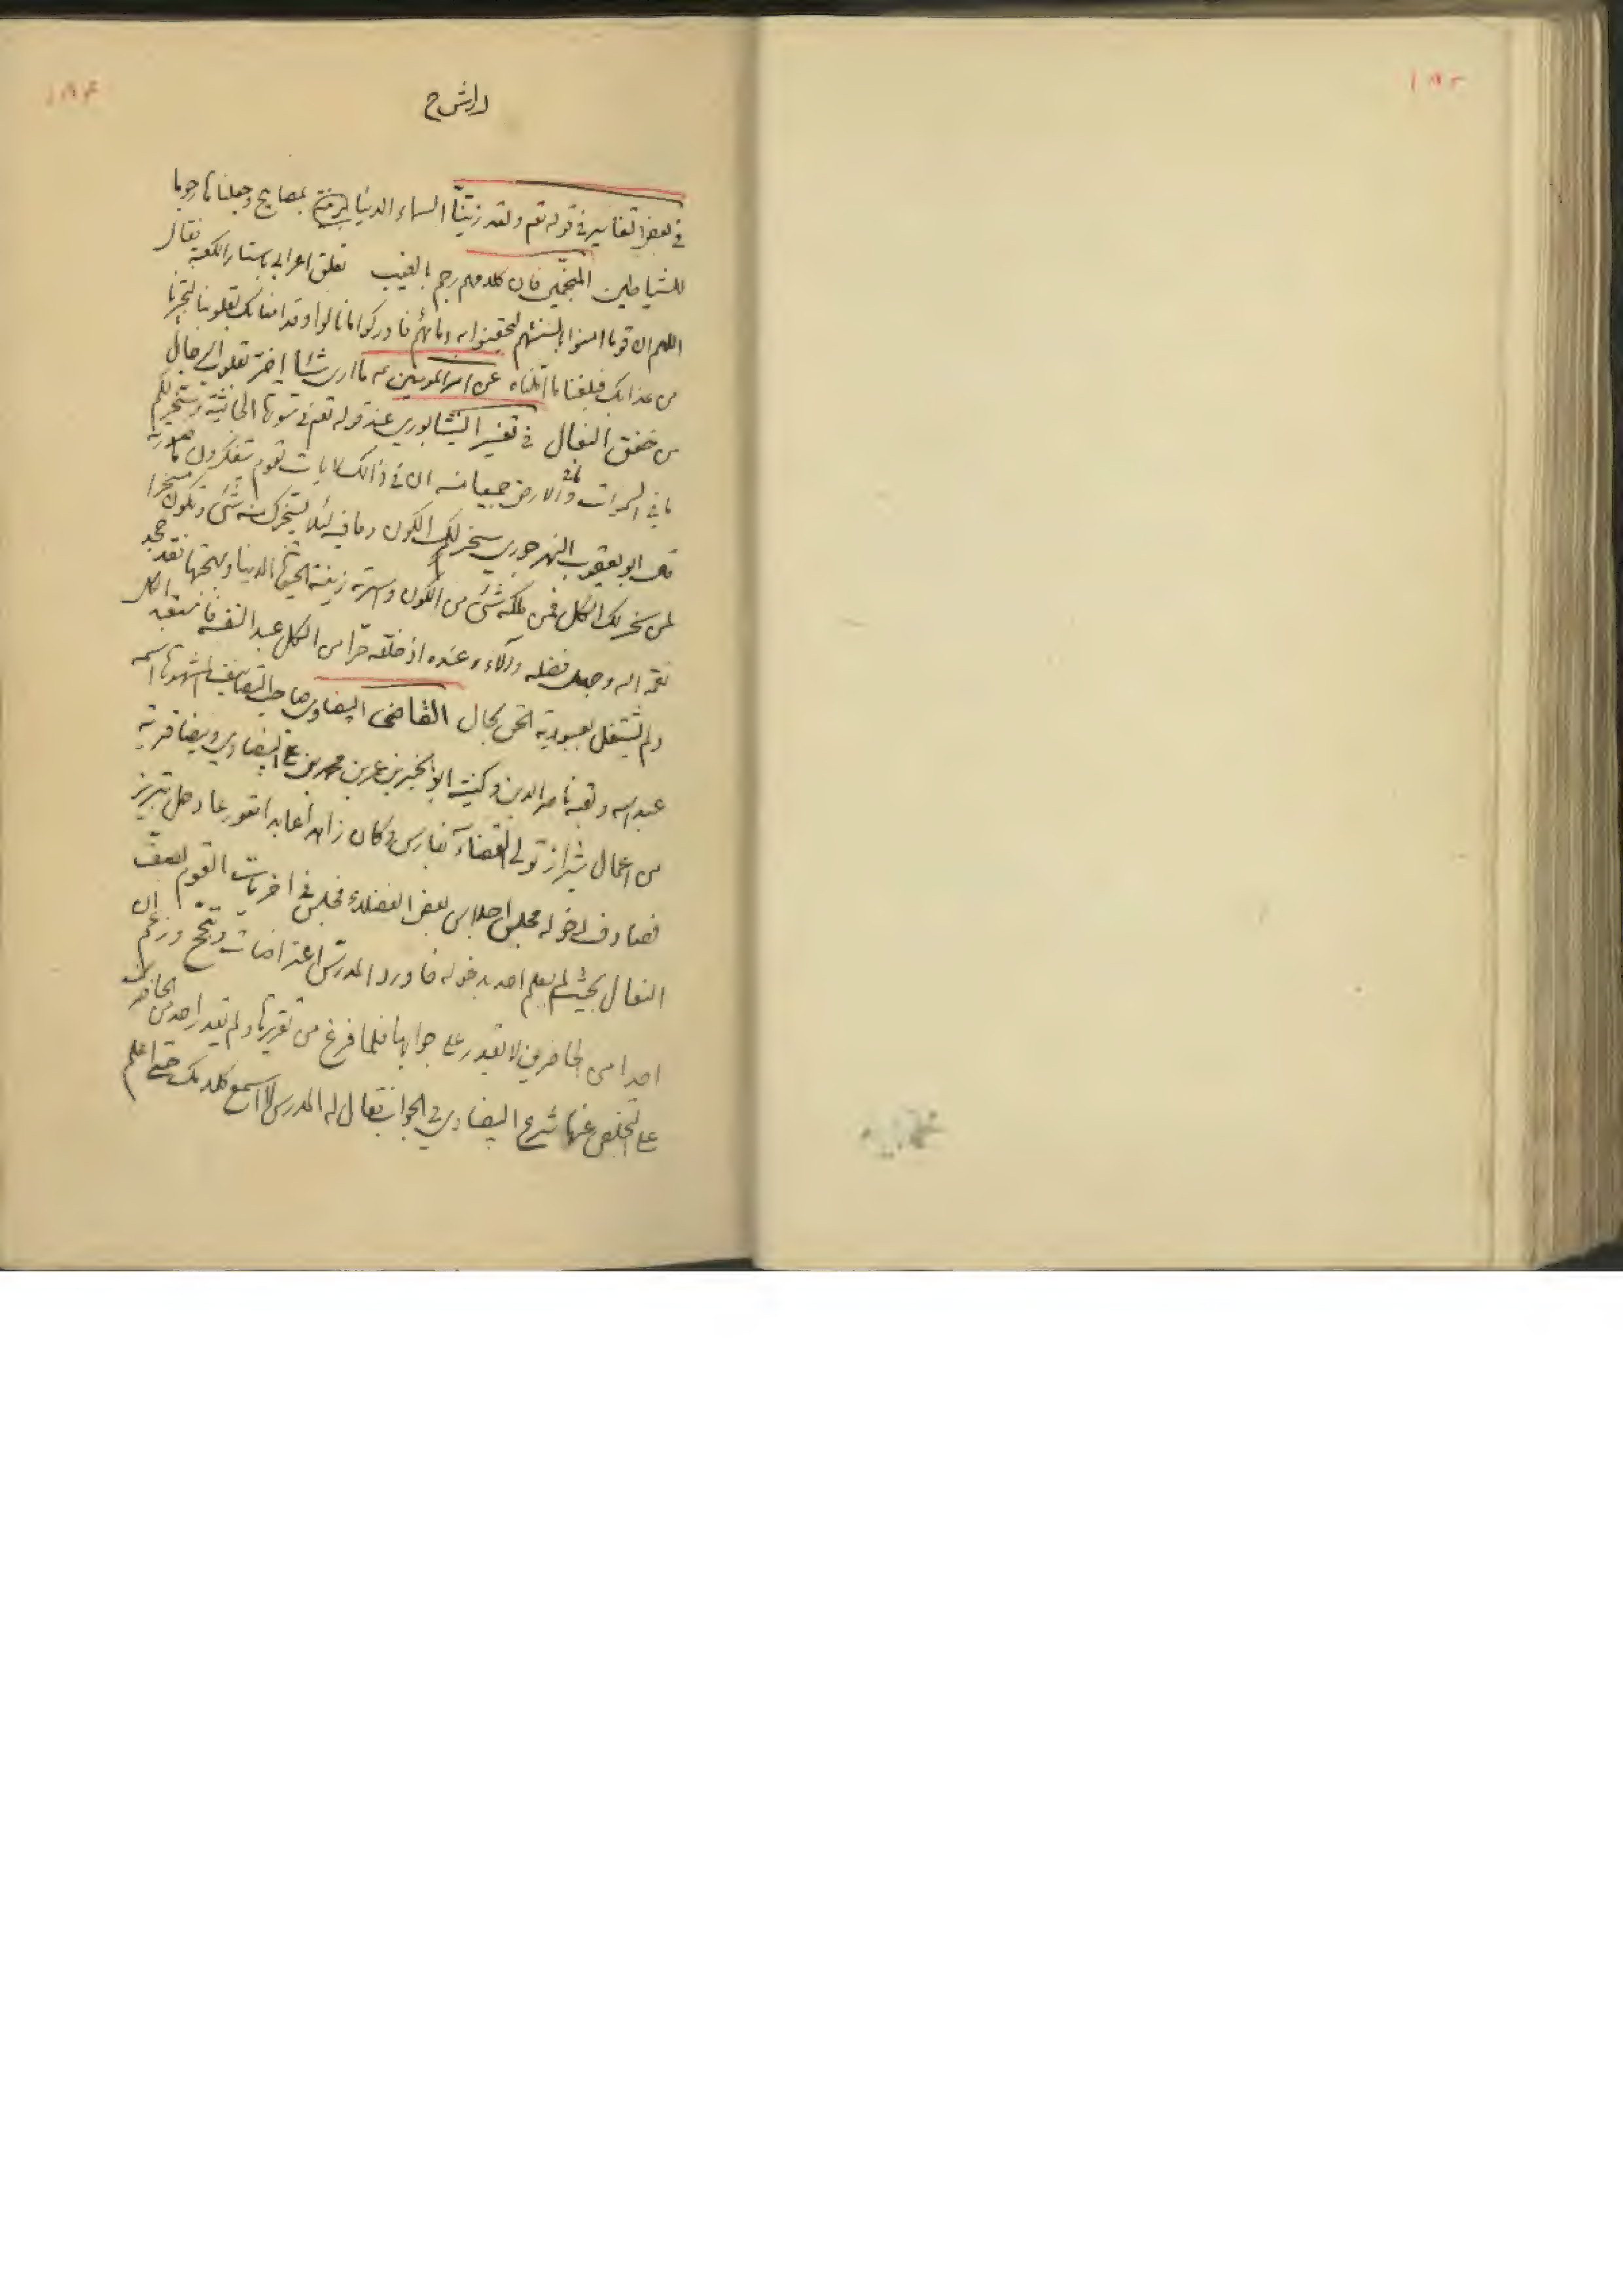 في بعض التفاسير في قوله تع ولقد زينا السماء الدنيا بمصابيح وجعلناها رجوما
للشياطين المنجمين فان كلامهم رجم بالغيب تعلق اعرابي باستار الكعبة فقال
اللهم ان قوما امنوا بالسنتهم ليحقنوا به دمائهم فادركوا ما املوا وقد امنا بك بقلوبنا لتجرنا
من عذابك فبلغنا ما املناه عن امير المومنين ع ما ارى شيئا اضر بقلوب الرجال
من خفق النعال في تفسير النيشابوري عند قوله تع في سورة الجاثية وسخر لكم
ما في السموات وما في الارض جميعا منه ان في ذالك لايات لقوم يتفكرون ما صورته
قال ابو يعقوب النهرجوري سخر لكم الكون وما فيه لئلا يسخرك منه شئ وتكون مسخرا
لمن سخر لك الكل فمن ملكه شئ من الكون واسرته زينة الحيوة الدنيا وبهجتها فقد جحد
نعمة الله وجهل فضله وآلاءه عنده اذ خلقه حرا من الكل عبدا لنفسه فاستعبده الكل
ولم يشتغل بعبودية الحق بحال القاضى البيضاوي صاحب التصانيف المشهورة اسمه
عبد الله ولقبه ناصر الدين وكنيته ابو الخير بن عمر بن محمد بن علي البيضاوي وبيضا قرية
من اعمال شيراز تولى القضاء بفارس وكان زاهدا عابدا متورعا دخل تبريز
فصادف دخوله مجلس اجلاس بعض الفضلاء فجلس في اخريات القوم بصف
النعال بحيث لم يعلم احد بدخوله فاورد المدرس اعتراضات وتبجح وزعم ان
احدا من الحاضرين لا يقدر على جوابها فلما فرغ من تقريرها ولم يقدر احد من الحاضرين
على التخلص عنها شرع البيضاوي في الجواب فقال له المدرس لا اسمع كلامك حتى اعلم